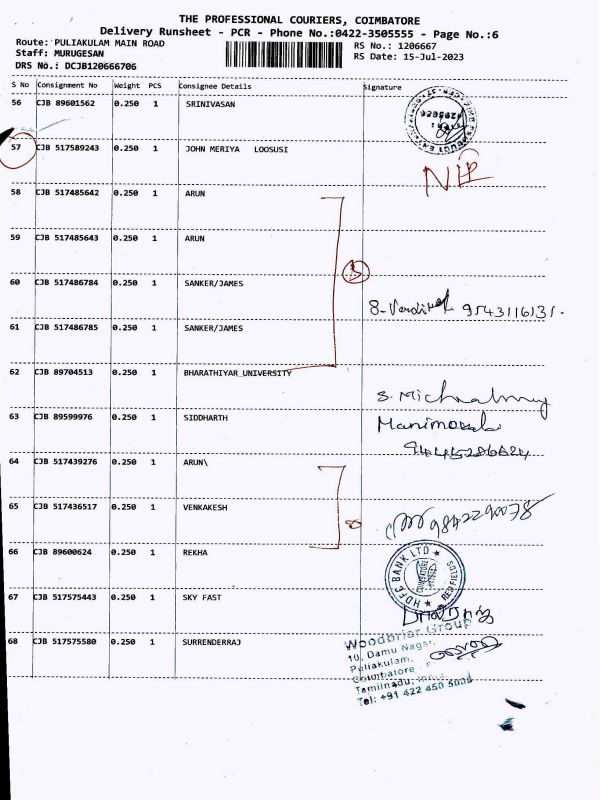 THE PROFESSIONAL COURIERS, COIMBATORE
Delivery Runsheet - PCR - Phone No.:0422-3505555 - Page No.:6
Route: PULIAKULAM MAIN ROAD
Staff: MURUGESAN
DRS No.: DCJB120666706
RS No.: 1206667
RS Date: 15-Jul-2023
S No Consignment No Weight PCS Consignee Details Signature
56 CJB 89601562 0.250 1 SRINIVASAN
57 CJB 517589243 0.250 1 JOHN MERIYA LOOSUSI
58 CJB 517485642 0.250 1 ARUN
59 CJB 517485643 0.250 1 ARUN
60 CJB 517486784 0.250 1 SANKER/JAMES
9543116131.
61 CJB 517486785 0.250 1 SANKER/JAMES
62 CJB 89704513 0.250 1 BHARATHIYAR UNIVERSITY
63 CJB 89599976 0.250 1 SIDDHARTH
64 CJB 517439276 0.250 1 ARUN\
65 CJB 517436517 0.250 1 VENKAKESH
9842290078
66 CJB 89600624 0.250 1 REKHA
HDFC BANK LTD
COIMBATORE
67 CJB 517575443 0.250 1 SKY FAST
68 CJB 517575580 0.250 1 SURRENDERRAJ
Woodbriar Group
10, Damu Nagar,
Puliakulam,
Coimbatore
Tamilnadu,
Tel: +91 422 450 5004